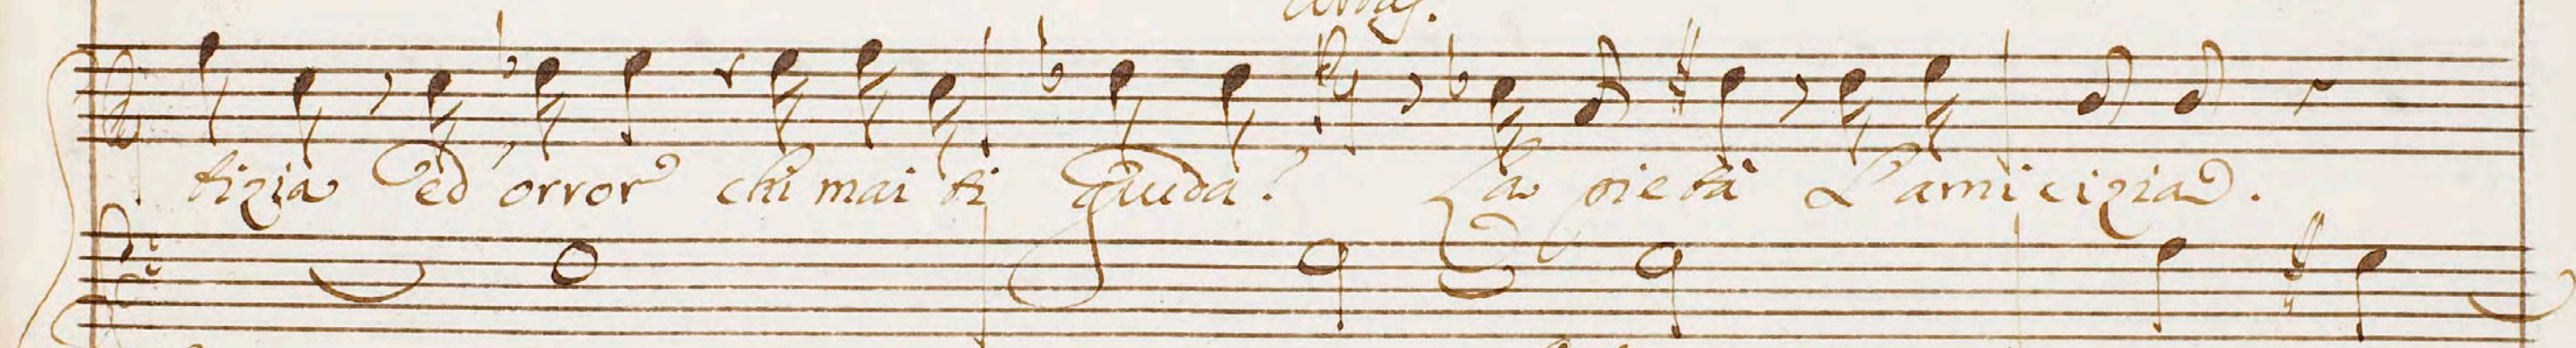 tizia ed orror chi mai ti guida? La pietà L'amicizia.